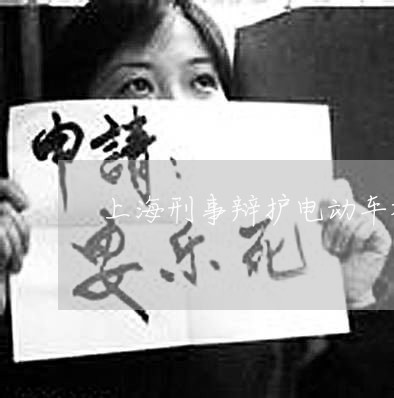 申請：
上海刑事辩护电动车
安乐死